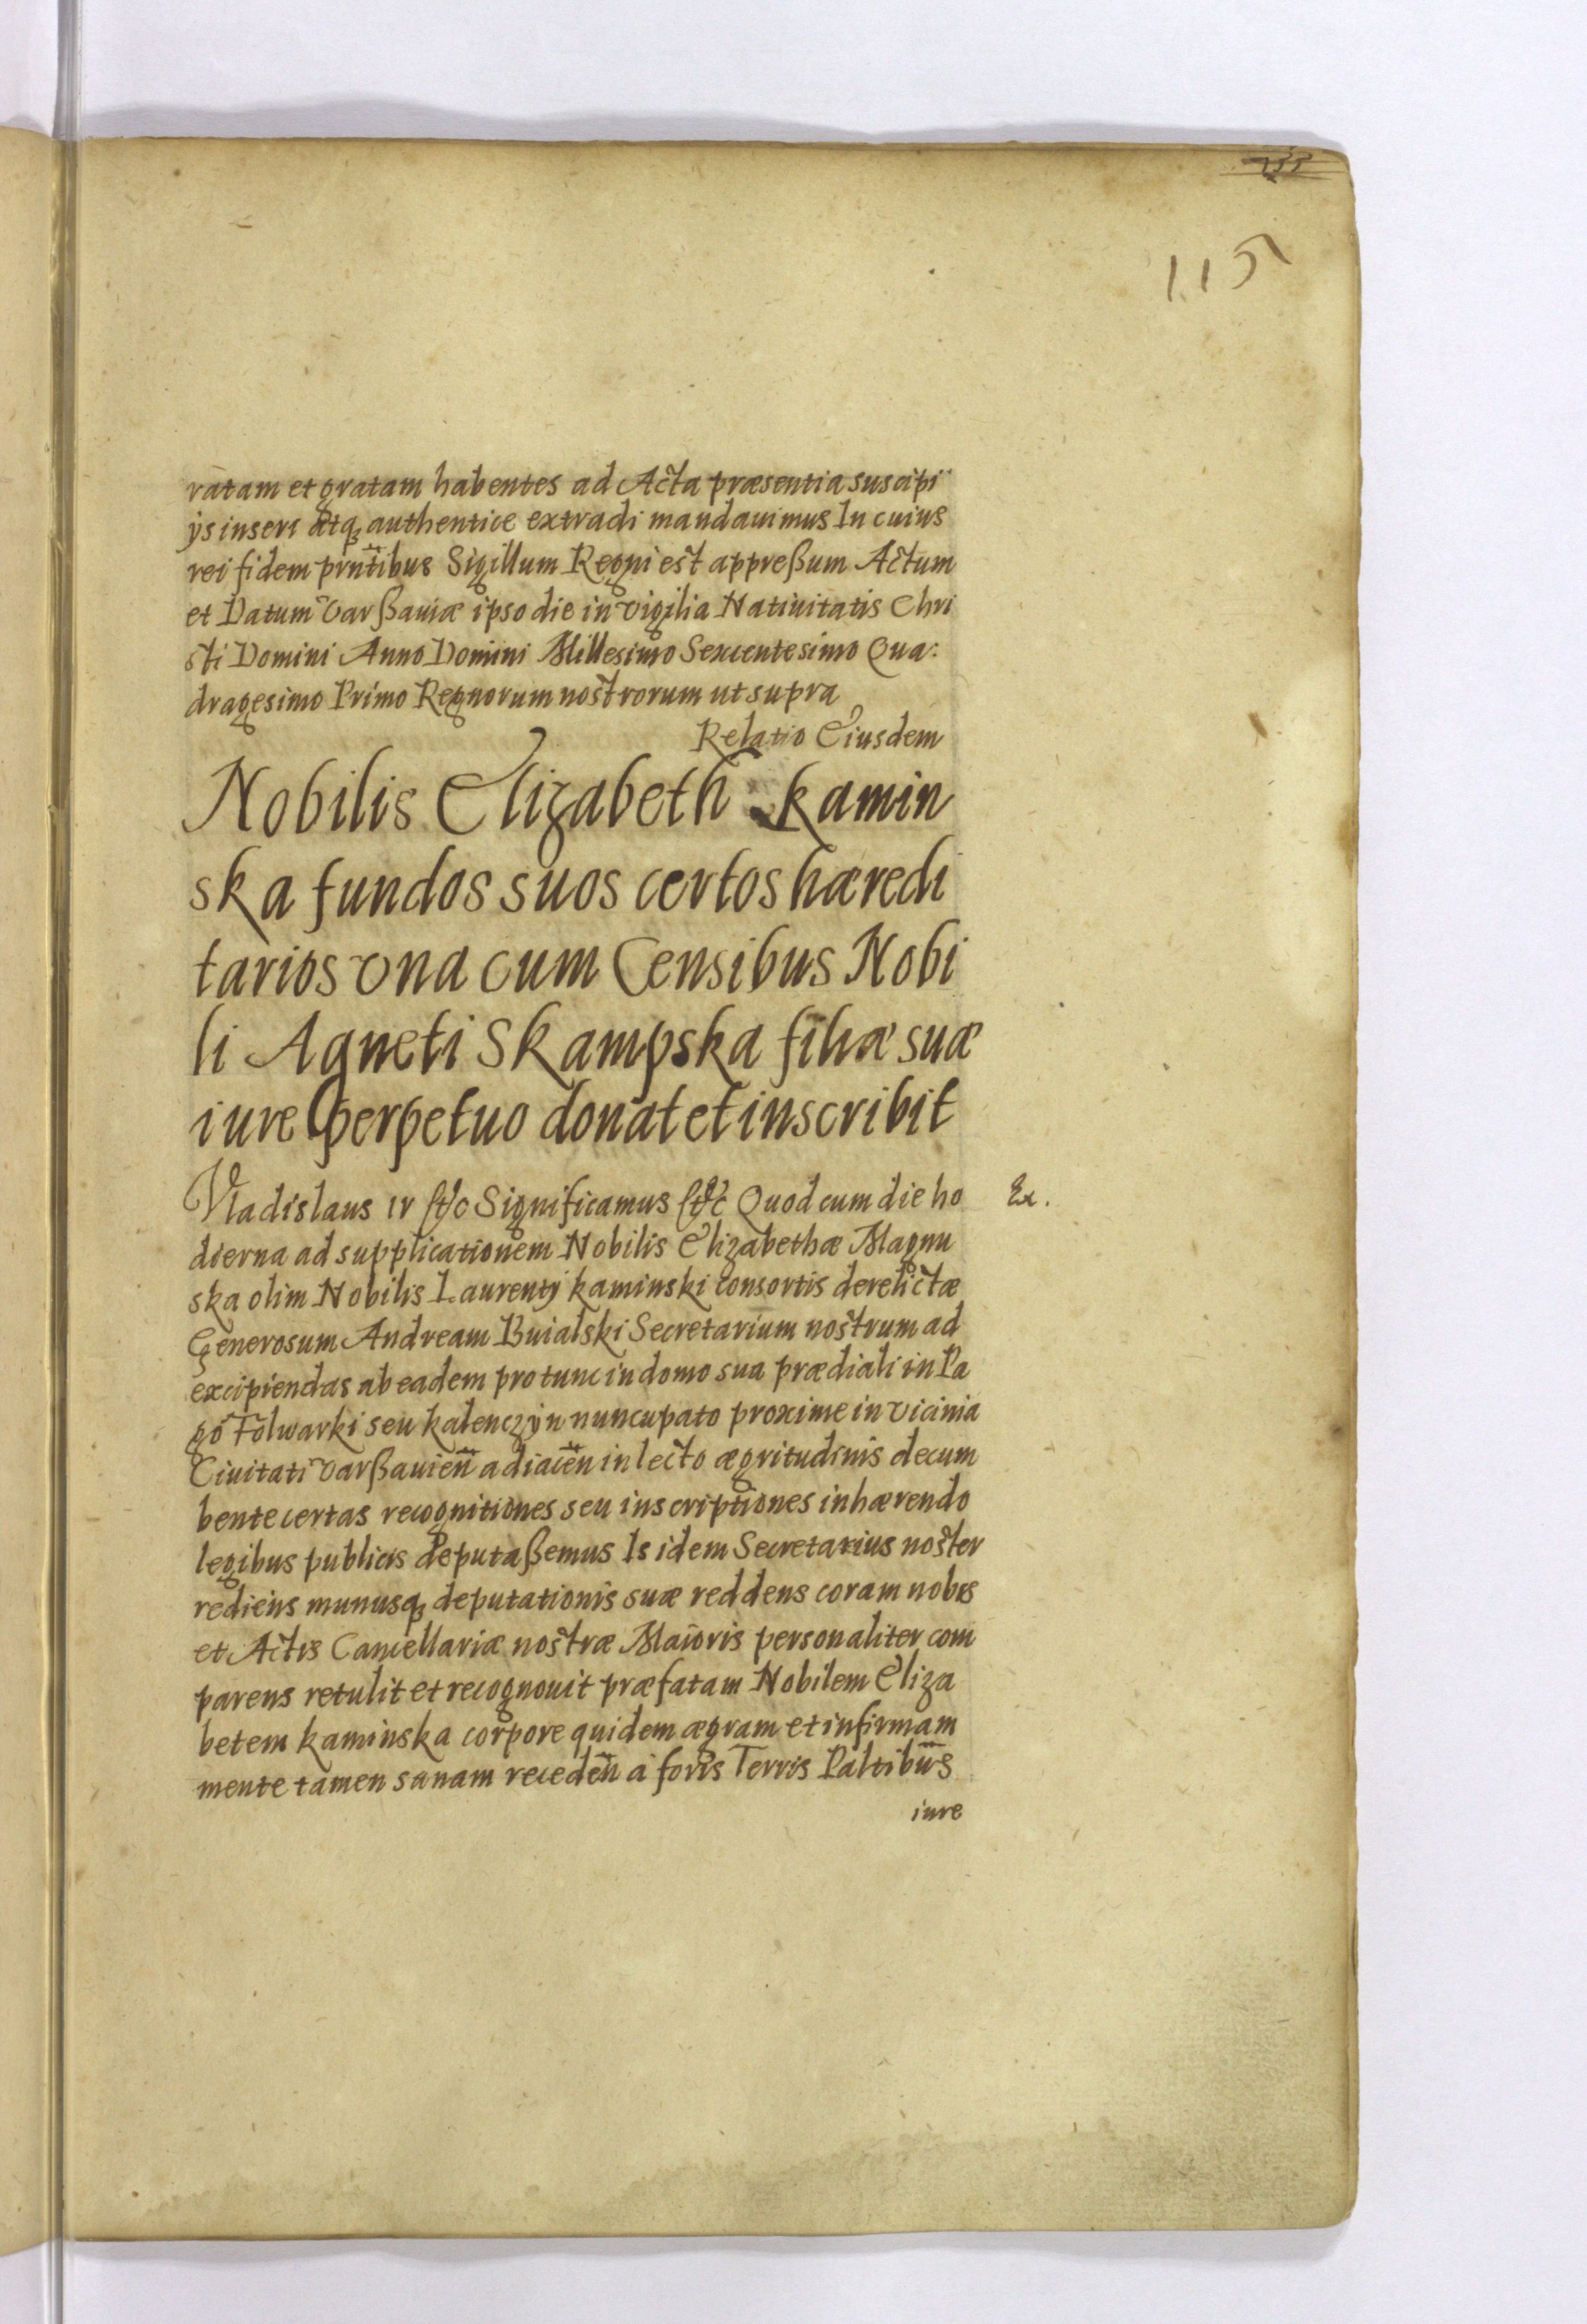 115
ratam et gratam habentes ad Acta præsentia suscipi
ijs inseri atq; authentice extradi mandauimus In cuius
rei fidem prntibus Sigillum Regni est appreßum Actum
et Datum Varßauiæ ipso die in vigilia Natiuitatis Chri
sti Domini Anno Domini Millesimo Sexcentesimo Qua:
dragesimo Primo Regnorum nostrorum ut supra
Relatio Eiusdem
Nobilis Elizabeth kamin
ska fundos suos certos hæredi
tarios vna cum Censibus Nobi
li Agneti Skampska filiæ suæ
iure perpetuo donat et inscribit
Vladislaus IV etc Significamus etc Quod cum die ho
Ex.
dierna ad supplicationem Nobilis Elizabethæ Magnu
ska olim Nobilis Laurentij kaminski consortis derelictæ
Generosum Andream Buialski Secretarium nostrum ad
excipiendas ab eadem pro tunc in domo sua prædiali in Pa
go Folwarki seu kalenczyn nuncupato proxime in vicinia
Ciuitati Varßauien adiacen in lecto ægritudinis decum
bente certas recognitiones seu inscriptiones inhærendo
legibus publicis deputaßemus Is idem Secretarius noster
rediens munusq; deputationis suæ reddens coram nobis
et Actis Cancellariæ nostræ Maioris personaliter com
parens retulit et recognouit præfatam Nobilem Eliza
betem kaminska corpore quidem ægram et infirmam
mente tamen sanam receden a foris Terris Paltibus
iure